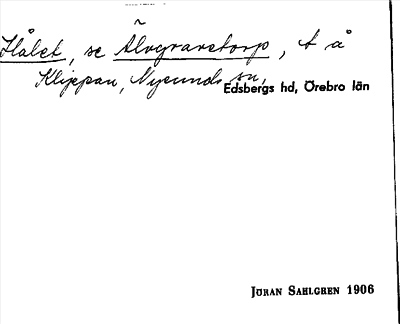 Hålet, se Älvgravstorp, t å
Klippan, Nysunds sn,
Edsbergs hd, Örebro län
Jöran Sahlgren 1906